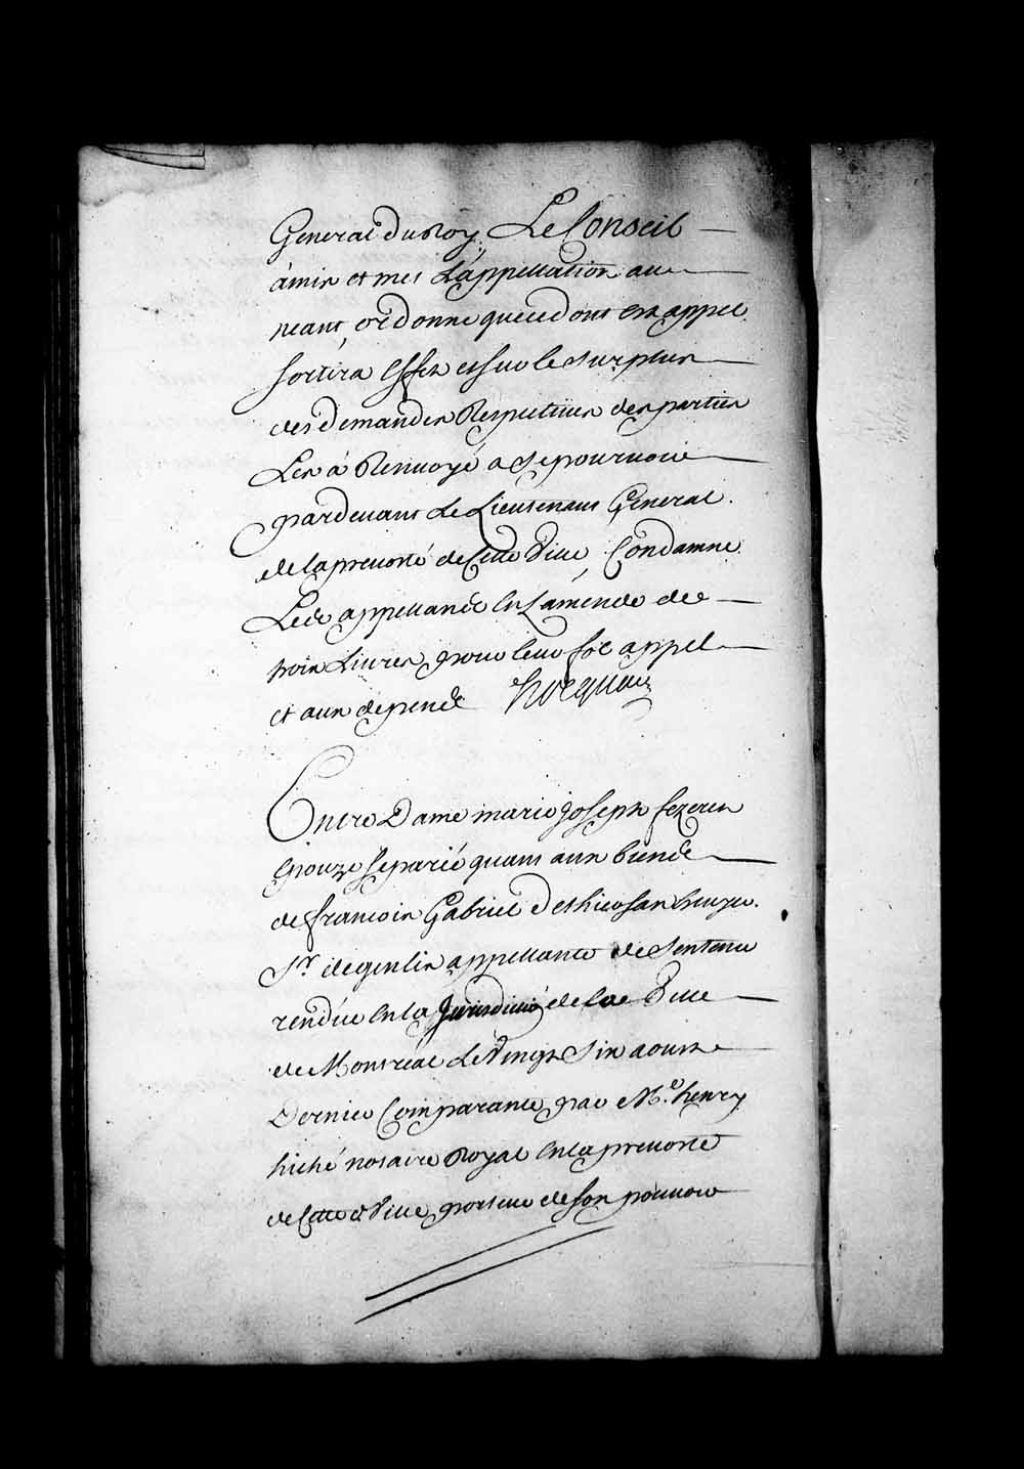 General du Roy, Le Conseil
a mis et met L'appellation au
neant, ordonne que ce dont est appel
sortira Effet et sur le surplus
des demandes Respectives des parties
Les a Renvoyé a se pourvoir
pardevant Le Lieutenant General
de la prevosté de Cette Ville, Condamne
Lesd appellands En L'amende de
trois Livres pour leur fol appel
et aux depends Hocquart
Entre Dame marie Joseph fezeret
Epouze separée quant aux biends
de françois Gabriel
Sr. de genlis appellante de Sentence
rendüe En la Jurisdiction de la Ville
de Montreal Le Vingt Six aoust
Dernier Comparante par Me. henry
hiché notaire Royal En la prevosté
de Cette Ville, porteur de son pouvoir